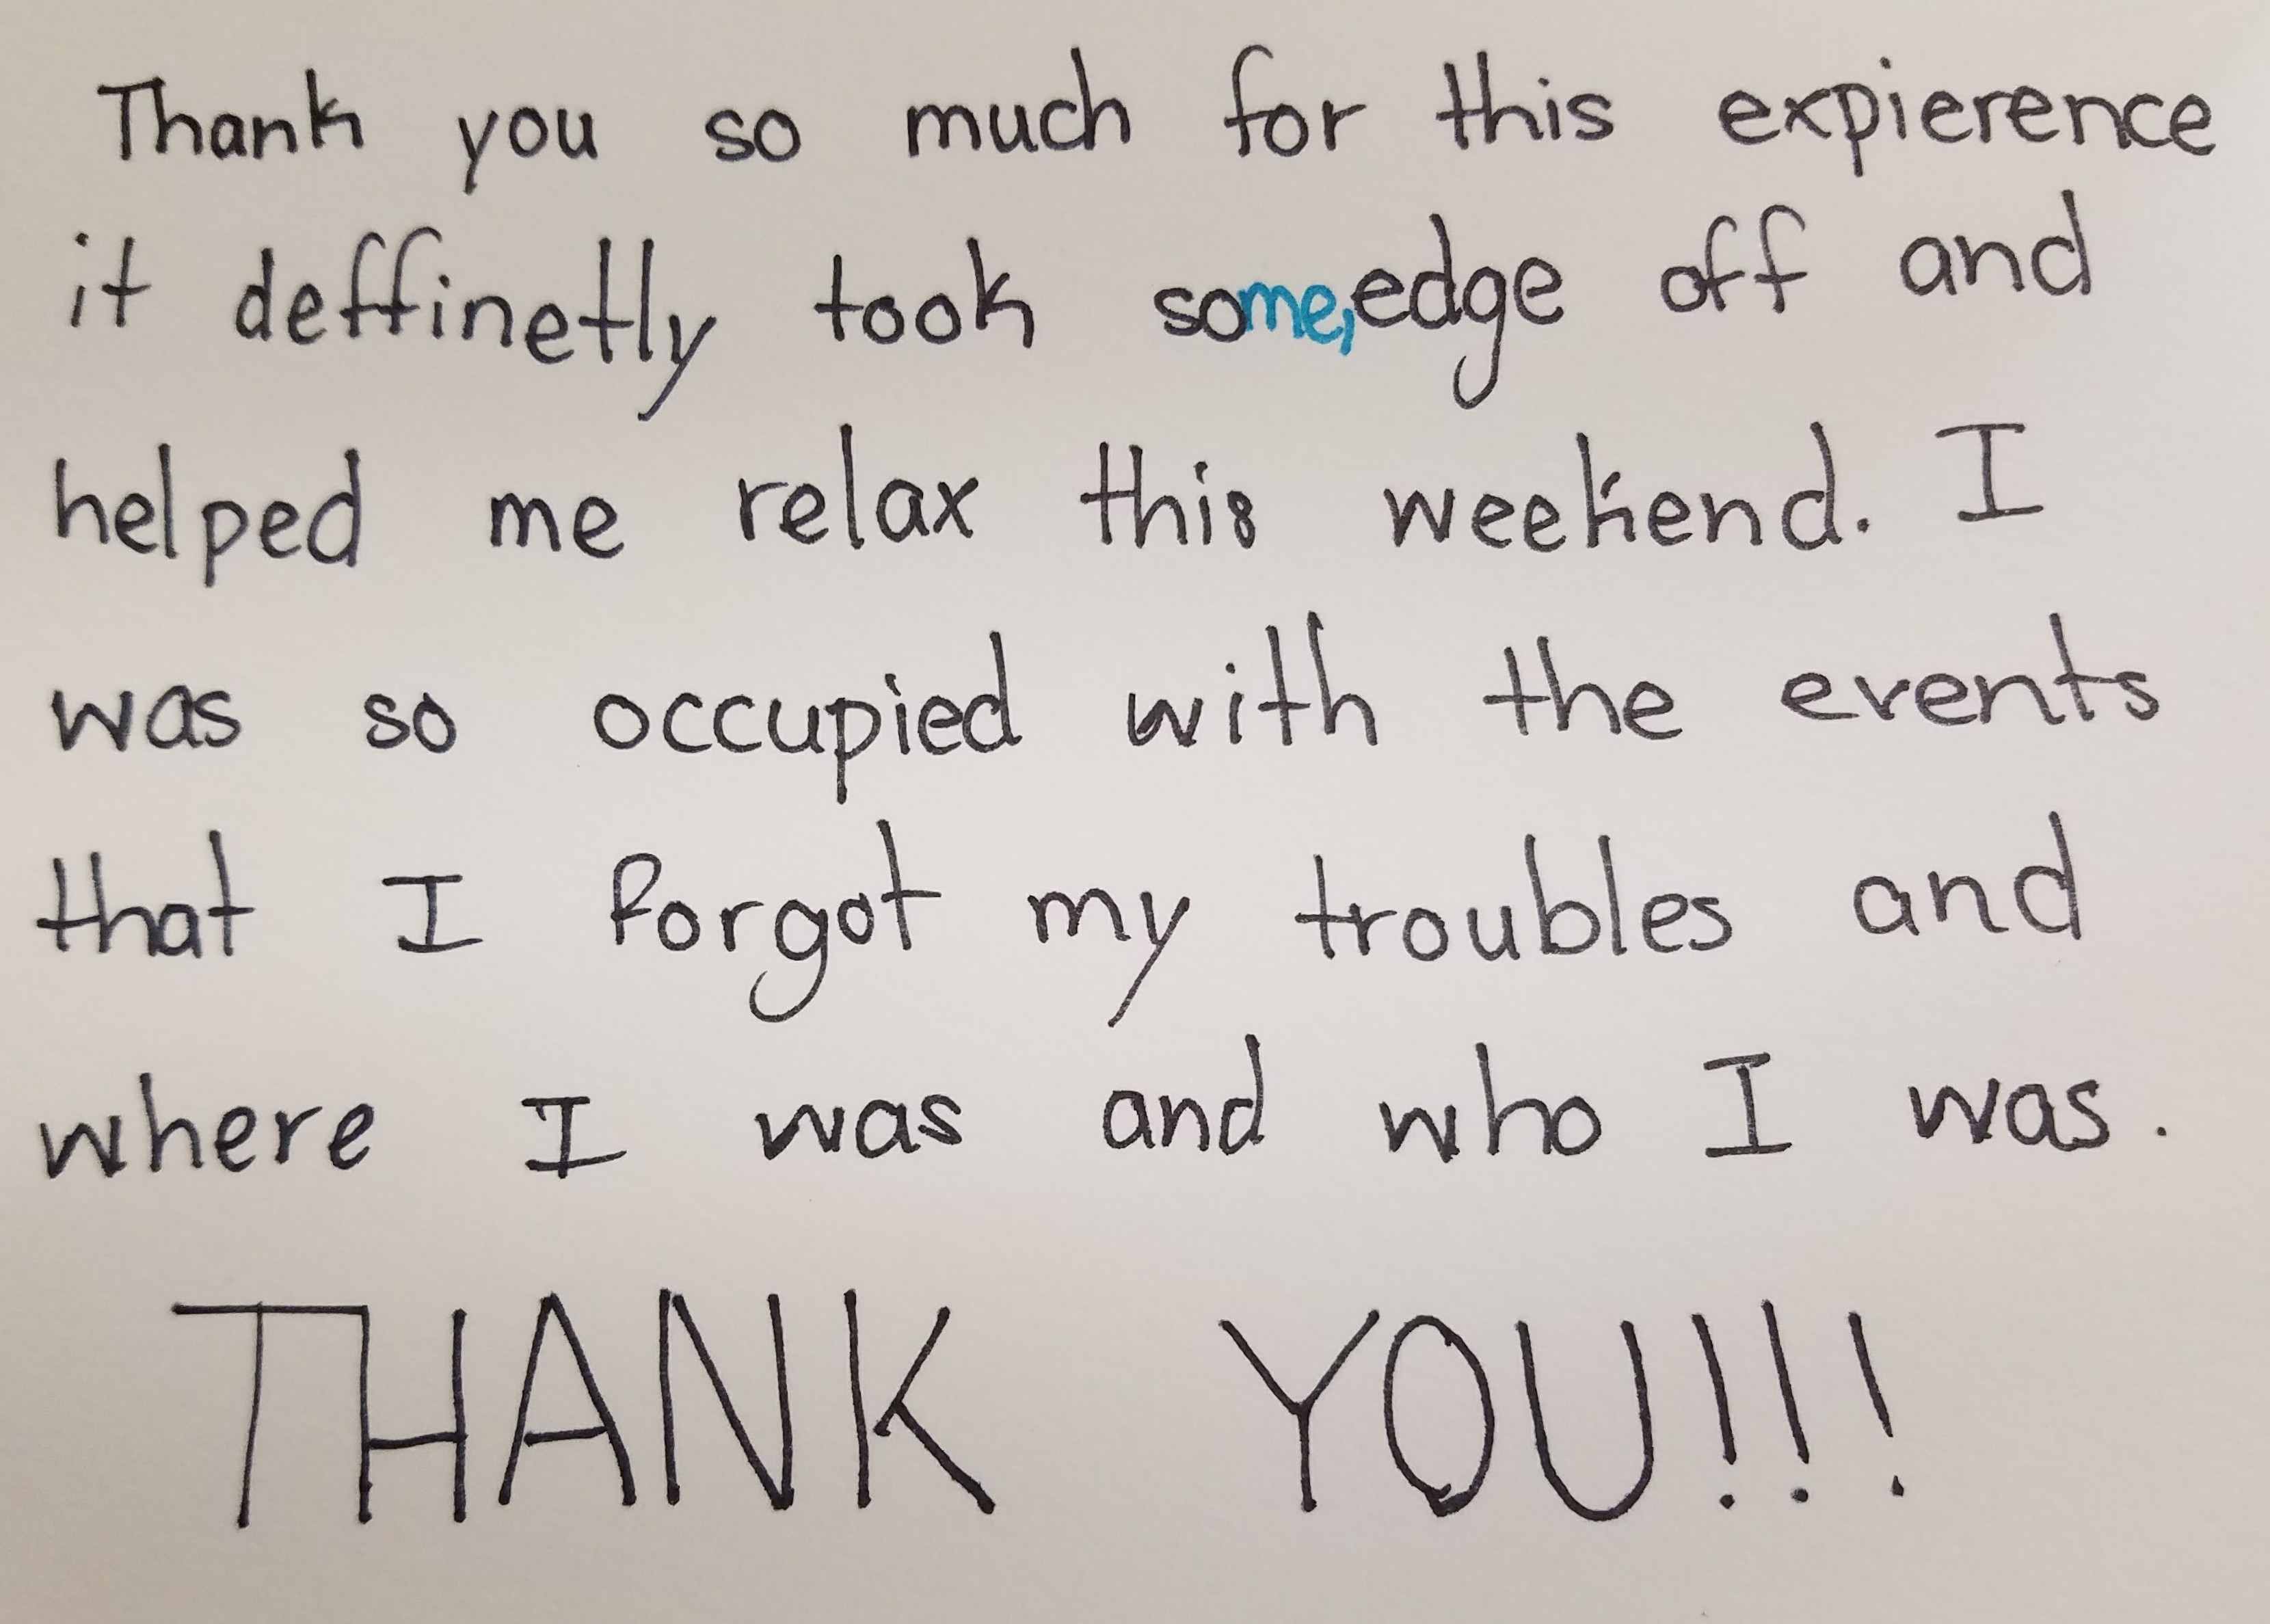 Thank you so much for this expierence
it deffinetly took some, edge off and
helped me relax this weekend. I
was so occupied with the events
that I forgot my troubles and
where I was and who I was.
THANK YOU!!!